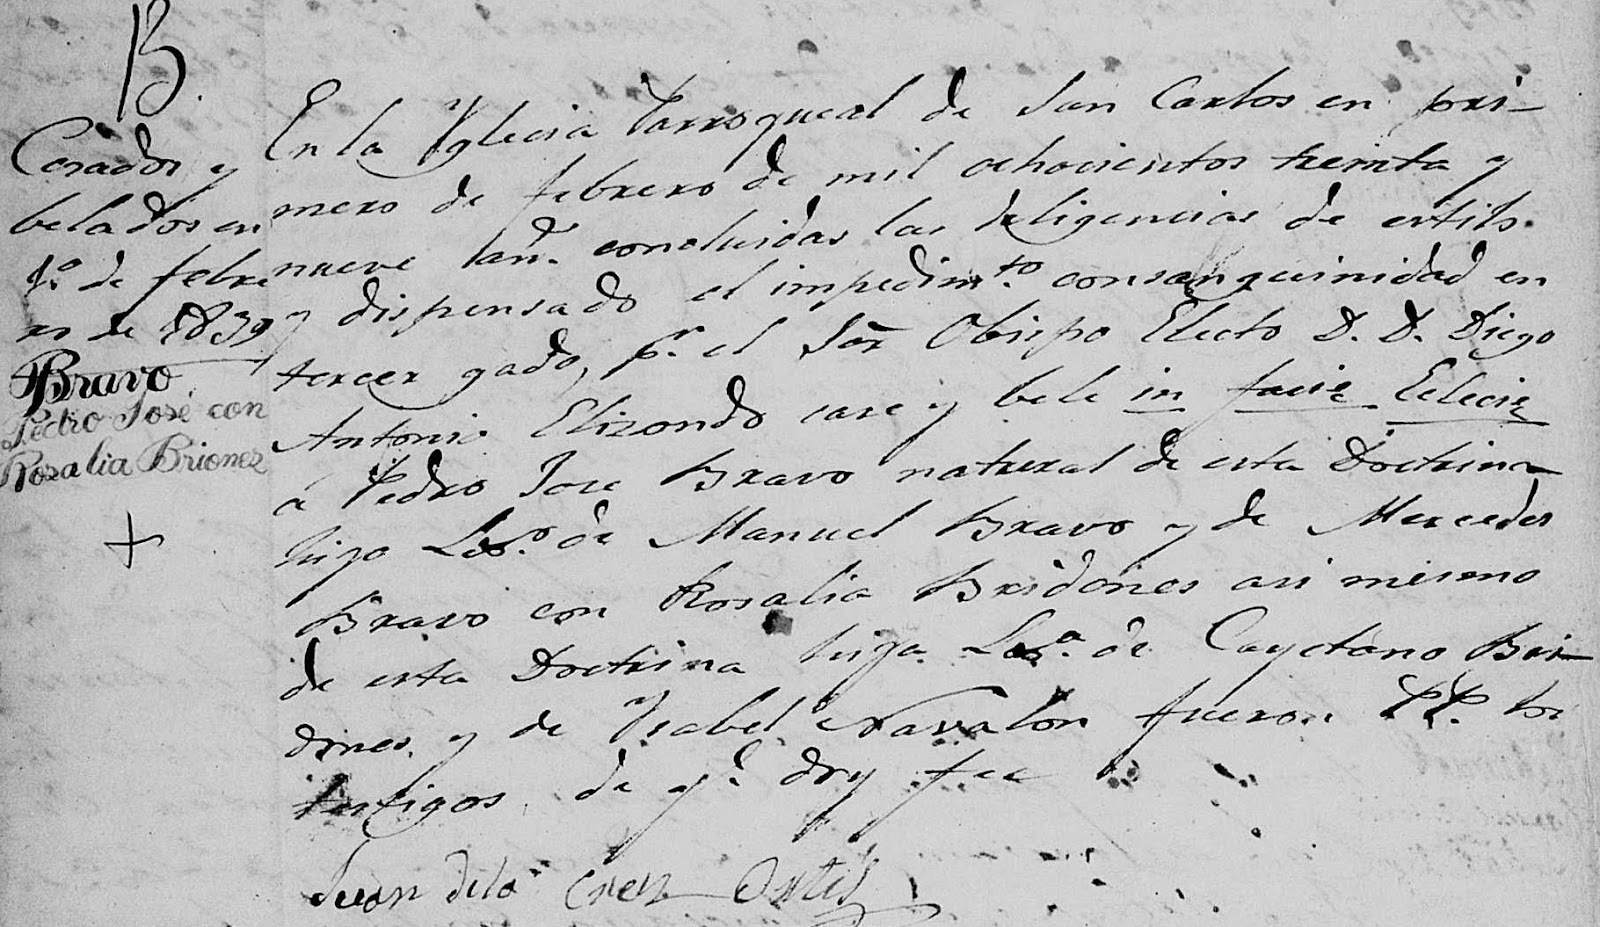 B.
Casados y
belados en
1º de febre
ro de 1839
Bravo
Pedro José con
Rosalia Briones
En la Yglecia Parroqueal de San Carlos en pri-
mero de febrero de mil ochocientos treinta y
nueve concluidas las deligencias de estilo.
y dispensado el impedim.to consanguinidad en
tercer gado, p.r el Sor Obispo Electo D. D. Diego
Antonio Elizondo case y bele in facie Eclecie
á Pedro Jose Bravo natural de esta Doctrina
hijo de Manuel Bravo y de Mercedes
Bravo con Rosalia Bridones asi mismo
de esta Doctrina hija de Cayetano Bri-
dones y de Ysabel Navalon fueron PP. los
testigos de q.e doy fee
Juan de la Cruz Ortis